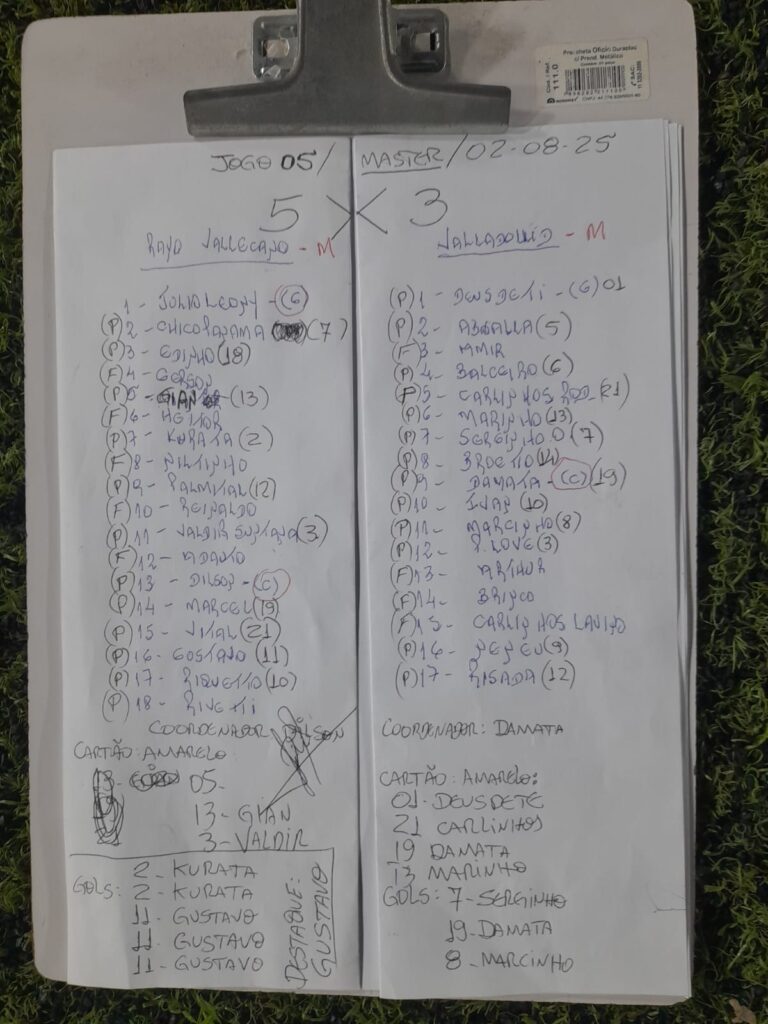 Prancheta Oficio Duraplac
c/ Prend. Metálico
111.0
JOGO 05/
MASTER / 02-08-25
5 X 3
RAYO VALLECANO - M
1 - JULIO LEONY - (G)
(P) 2 - CHICO PANAMA (7)
(P) 3 - EDINHO (18)
(F) 4 - GERSON
(P) 5 - GIAN (13)
(F) 6 - HEITOR
(P) 7 - KURATA (2)
(F) 8 - NILTINHO
(P) 9 - PALMITAL (12)
(F) 10 - REINALDO
(P) 11 - VALDIR SANTANA (3)
(F) 12 - ADAUTO
(P) 13 - DILSON - (C)
(P) 14 - MARCEL (19)
(P) 15 - VITAL (21)
(P) 16 - GUSTAVO (11)
(P) 17 - RIQUETTO (10)
(P) 18 - RIVETTI
COORDENADOR: DILSON
CARTÃO: AMARELO
05 -
13 - GIAN
3 - VALDIR
GOLS: 2 - KURATA
2 - KURATA
11 - GUSTAVO
11 - GUSTAVO
11 - GUSTAVO
DESTAQUE:
GUSTAVO
VALLADOLID - M
(P) 1 - DEUSDETI - (G) 01
(P) 2 - ABDALLA (5)
(F) 3 - AMIR
(P) 4 - BALCEIRO (6)
(P) 5 - CARLINHOS ROD. (21)
(P) 6 - MARINHO (13)
(P) 7 - SERGINHO O (7)
(P) 8 - BROETTO (14)
(P) 9 - DAMATA - (C) (19)
(P) 10 - IVAN (10)
(P) 11 - MARCINHO (8)
(P) 12 - P. LOVE (3)
(F) 13 - ARTHUR
(F) 14 - BRINCO
(F) 15 - CARLINHOS LAVINO
(P) 16 - PEPEU (9)
(P) 17 - RISADA (12)
COORDENADOR: DAMATA
CARTÃO: AMARELO:
01 - DEUSDETE
21 CARLINHOS
19 DAMATA
13 MARINHO
GOLS: 7 - SERGINHO
19 - DAMATA
8 - MARCINHO